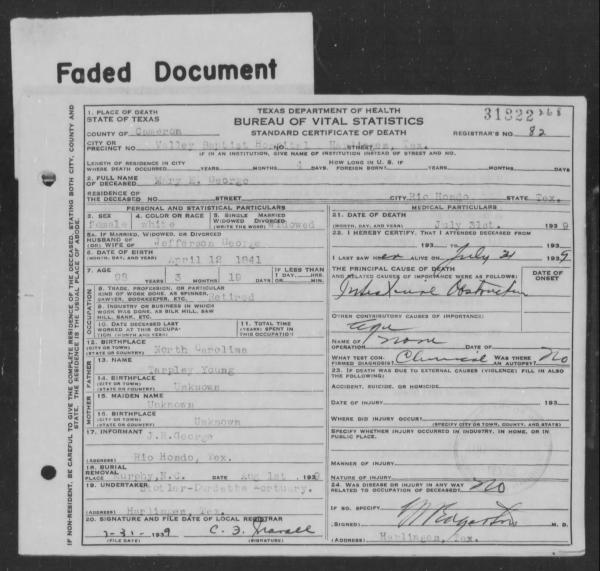 Faded Document
TEXAS DEPARTMENT OF HEALTH
BUREAU OF VITAL STATISTICS
STANDARD CERTIFICATE OF DEATH
31822 268
REGISTRAR'S NO. 82
1. PLACE OF DEATH
STATE OF TEXAS
COUNTY OF Cameron
CITY OR PRECINCT NO. Valley Baptist Hospital Tex.
IF IN AN INSTITUTION, GIVE NAME OF INSTITUTION INSTEAD OF STREET AND NO.
LENGTH OF RESIDENCE IN CITY WHERE DEATH OCCURRED YEARS MONTHS DAYS
HOW LONG IN U. S. IF FOREIGN BORN? YEARS MONTHS DAYS
2. FULL NAME OF DECEASED Mary George
RESIDENCE OF THE DECEASED STREET NO. CITY Rio Hondo STATE Tex.
PERSONAL AND STATISTICAL PARTICULARS
3. SEX female
4. COLOR OR RACE White
5. SINGLE MARRIED WIDOWED DIVORCED (WRITE THE WORD) Widowed
5A. IF MARRIED, WIDOWED, OR DIVORCED
HUSBAND OF (OR) WIFE OF Jefferson George
6. DATE OF BIRTH (MONTH, DAY, AND YEAR) April 12 1841
7. AGE 98 YEARS 3 MONTHS 19 DAYS
IF LESS THAN 1 DAY, HRS. MIN.
OCCUPATION
8. TRADE, PROFESSION, OR PARTICULAR KIND OF WORK DONE, AS SPINNER, SAWYER, BOOKKEEPER, ETC. Retired
9. INDUSTRY OR BUSINESS IN WHICH WORK WAS DONE, AS SILK MILL, SAW MILL, BANK, ETC.
10. DATE DECEASED LAST WORKED AT THIS OCCUPATION (MONTH AND YEAR)
11. TOTAL TIME (YEARS) SPENT IN THIS OCCUPATION
12. BIRTHPLACE (CITY OR TOWN) (STATE OR COUNTRY) North Carolina
FATHER
13. NAME Tarpley Young
14. BIRTHPLACE (CITY OR TOWN) (STATE OR COUNTRY) Unknown
MOTHER
15. MAIDEN NAME Unknown
16. BIRTHPLACE (CITY OR TOWN) (STATE OR COUNTRY) Unknown
17. INFORMANT J.R.George
(ADDRESS) Rio Hondo, Tex.
18. BURIAL REMOVAL
PLACE Murphy,N.C. DATE Aug 1st 1939
19. UNDERTAKER
(ADDRESS) Harlingen, Tex.
20. SIGNATURE AND FILE DATE OF LOCAL REGISTRAR
7-31- 1939 C. F.
(FILE DATE) (SIGNATURE)
MEDICAL PARTICULARS
21. DATE OF DEATH (MONTH, DAY, AND YEAR) July 31st. 1939
22. I HEREBY CERTIFY, THAT I ATTENDED DECEASED FROM
193 TO 193
I LAST SAW her ALIVE ON July 31 1939
THE PRINCIPAL CAUSE OF DEATH AND RELATED CAUSES OF IMPORTANCE WERE AS FOLLOWS:
DATE OF ONSET
Intestinal Obstruction
OTHER CONTRIBUTORY CAUSES OF IMPORTANCE:
age
NAME OF OPERATION none DATE OF
WHAT TEST CONFIRMED DIAGNOSIS? Clinical WAS THERE AN AUTOPSY? No
23. IF DEATH WAS DUE TO EXTERNAL CAUSES (VIOLENCE) FILL IN ALSO THE FOLLOWING:
ACCIDENT, SUICIDE, OR HOMICIDE
DATE OF INJURY 193
WHERE DID INJURY OCCUR? (SPECIFY CITY OR TOWN, COUNTY, AND STATE)
SPECIFY WHETHER INJURY OCCURRED IN INDUSTRY, IN HOME, OR IN PUBLIC PLACE.
MANNER OF INJURY
NATURE OF INJURY
24. WAS DISEASE OR INJURY IN ANY WAY RELATED TO OCCUPATION OF DECEASED? No
IF SO, SPECIFY
(SIGNED) N Edgerton M. D.
(ADDRESS) Harlingen, Tex.
IF NON-RESIDENT, BE CAREFUL TO GIVE THE COMPLETE RESIDENCE OF THE DECEASED, STATING BOTH CITY, COUNTY AND STATE. THE RESIDENCE IS THE USUAL PLACE OF ABODE.